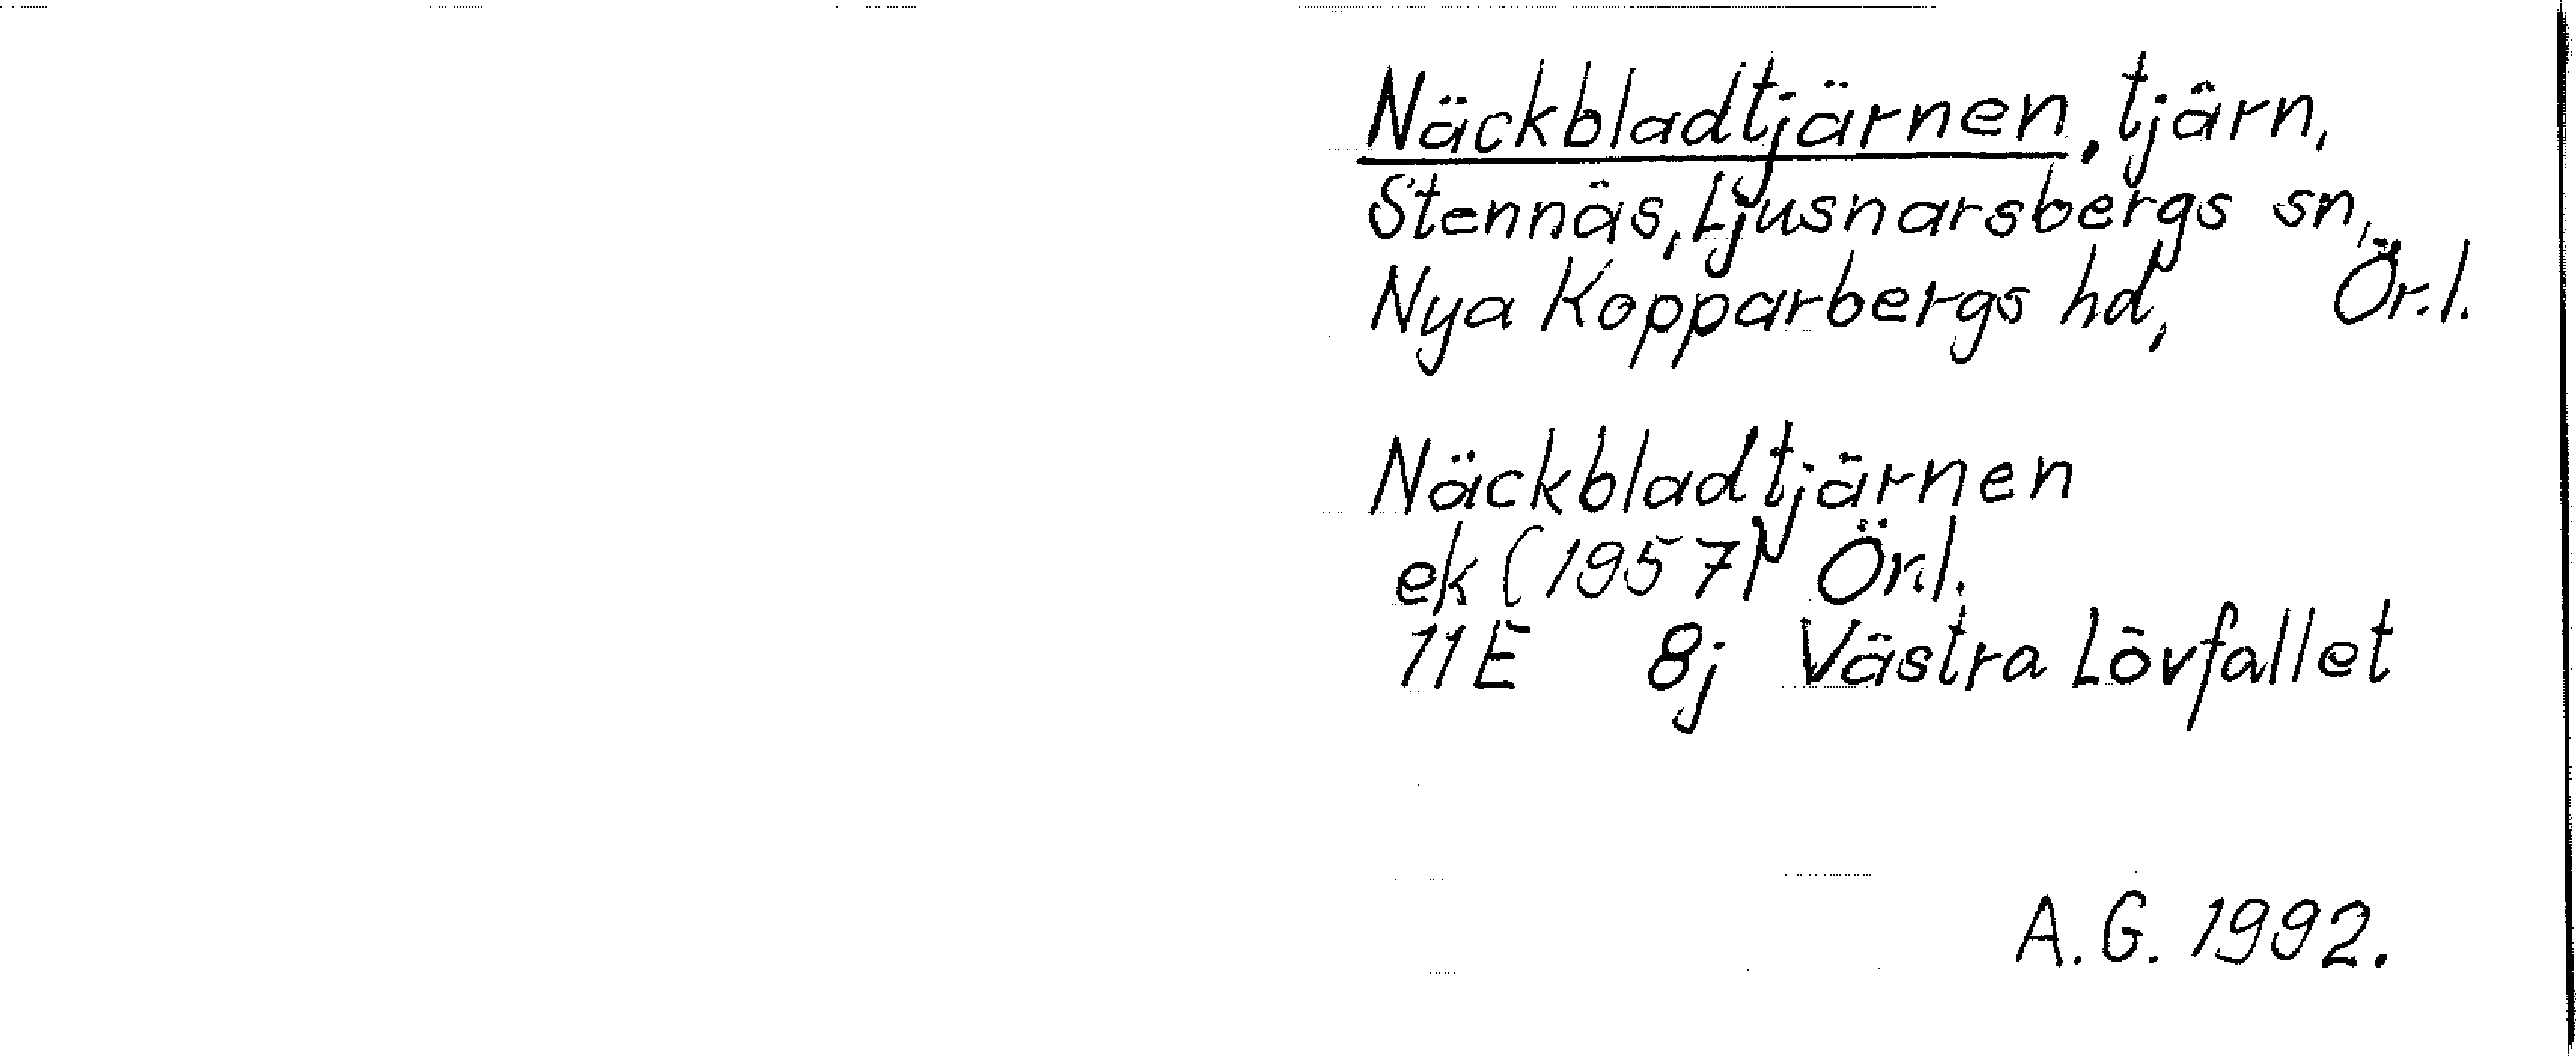 Näckbladtjärnen, tjärn,
Stennäs, Ljusnarsbergs sn,
Nya Kopparbergs hd, Ör.l.
Näckbladtjärnen
ek (1957) Ör.l.
11E 8j Västra Lövfallet
A.G. 1992.